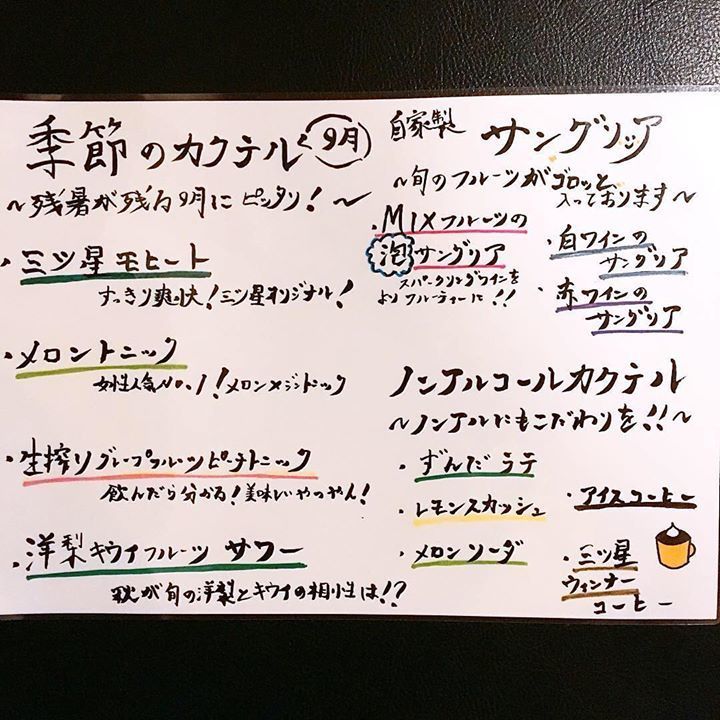 季節のカクテル 9月
～残暑が残る9月にピッタリ!～
・三ツ星モヒート
すっきり爽快!三ツ星オリジナル!
・メロントニック
女性人気No.1!メロン×ジントニック
・生搾りグレープフルーツピーチトニック
飲んだら分かる!美味しいやつやん!
・洋梨キウイフルーツ サワー
秋が旬の洋梨とキウイの相性は!?
自家製 サングリッア
～旬のフルーツがゴロッと
入っております～
・MIXフルーツの
泡サングリア
スパークリングワインを
よりフルーティーに!!
・白ワインの
サングリア
・赤ワインの
サングリア
ノンアルコールカクテル
～ノンアルにもこだわりを!!～
・ずんだラテ
・レモンスカッシュ
・メロンソーダ
・アイスコーヒー
・三ツ星
ウィンナー
コーヒー